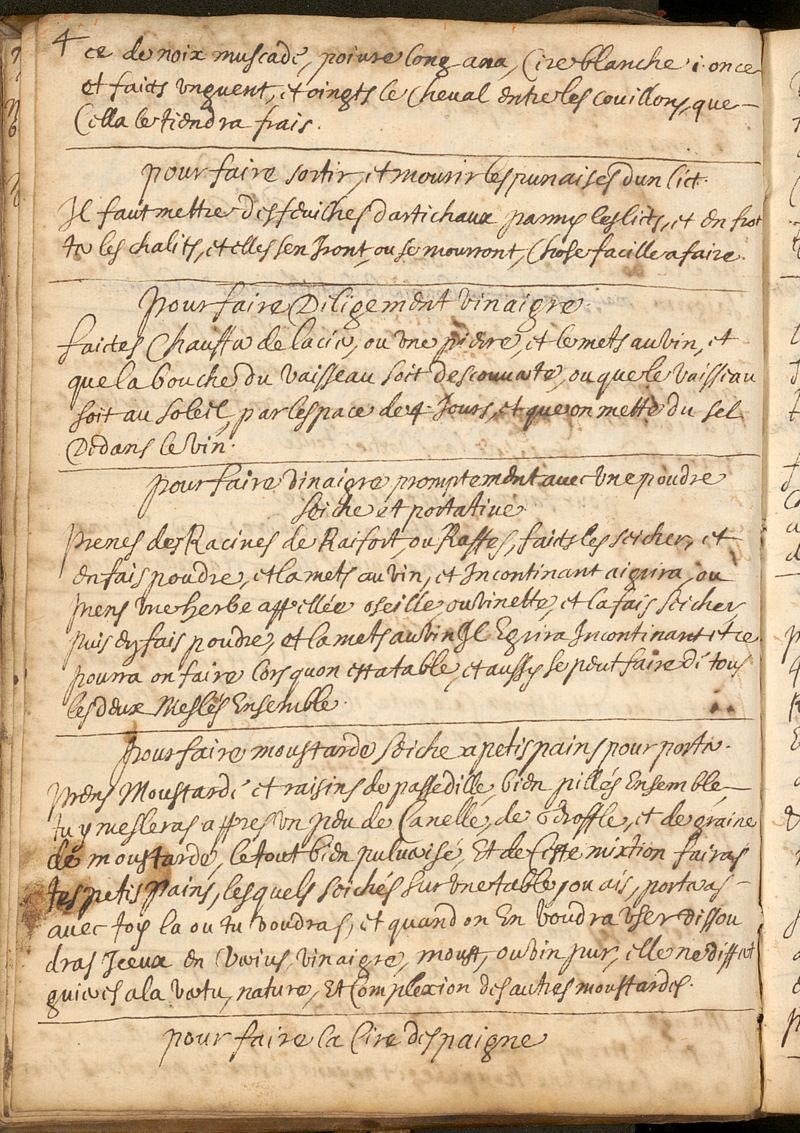 4
ce de noix muscade, poivre long ana, Cire blanche i once
et faicts unguent, et oingts le Cheval entre les couillons, que
Cella le tiendra frais.
pour faire sortir, et mourir les punaises dun lict.
Il faut mettre des feuilhes dartichaux parmy les licts, et en frot
te les chalits, et elles sen Iront, ou se mourront, Chose facille a faire.
pour faire Diligement vinaigre.
faictes Chauffer de lacie, ou une pierre, et le mets au vin, et
que la bouche du vaisseau soit descouverte, ou que le vaisseau
soit au soleil, par lespace de 4 Jours, et que on mette du sel
Dedans le vin.
pour faire vinaigre promptement avec une poudre
seiche et portative
prenes des Racines de Raifort, ou Raffes, faicts les seicher, et
en fais poudre, et la mets au vin, et Incontinant aigrira, ou
prens une herbe appellée oseille ou vinette, et la fais seicher
puis en fais poudre, et la mets au vin Il Egrira Incontinant et ce
pourra on faire lors quon est a table, et aussy se peut faire de tous
les deux Meslés Ensemble.
pour faire moustarde seiche a petis pains pour porter.
prens Moustarde et raisins de passedille, bien pillés Ensemble,
tu y mesleras appres un peu de Canelle, de Giroffle, et de graine
de moustarde, le tout bien pulverisé, Et de Ceste mixtion fairas
tes petis Pains, lesquels seichés sur une table, ou ais, porteras
avec toy la ou tu voudras, et quand on En voudra User dissou
dras Iceux en Verius, vinaigre, moust, ou vin pur, elle ne differe
guieres a la vertu, nature, Et Complexion des autres moustardes.
pour faire la Cire despaigne